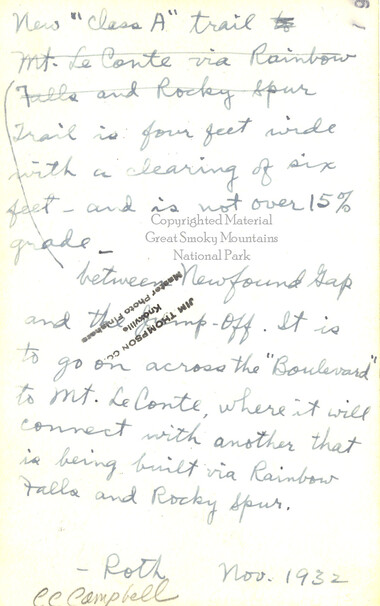 New "class A" trail to
Mt. Le Conte via Rainbow
Falls and Rocky Spur
Trail is four feet wide
with a clearing of six
feet - and is not over 15%
grade -
Copyrighted Material
Great Smoky Mountains
National Park
between Newfound Gap
and the Jump-Off. It is
to go on across the "Boulevard"
to Mt. Le Conte, where it will
connect with another that
is being built via Rainbow
Falls and Rocky Spur.
JIM THOMPSON CO.
Knoxville
Master Photo Finishers
- Roth
Nov. 1932
CC Campbell